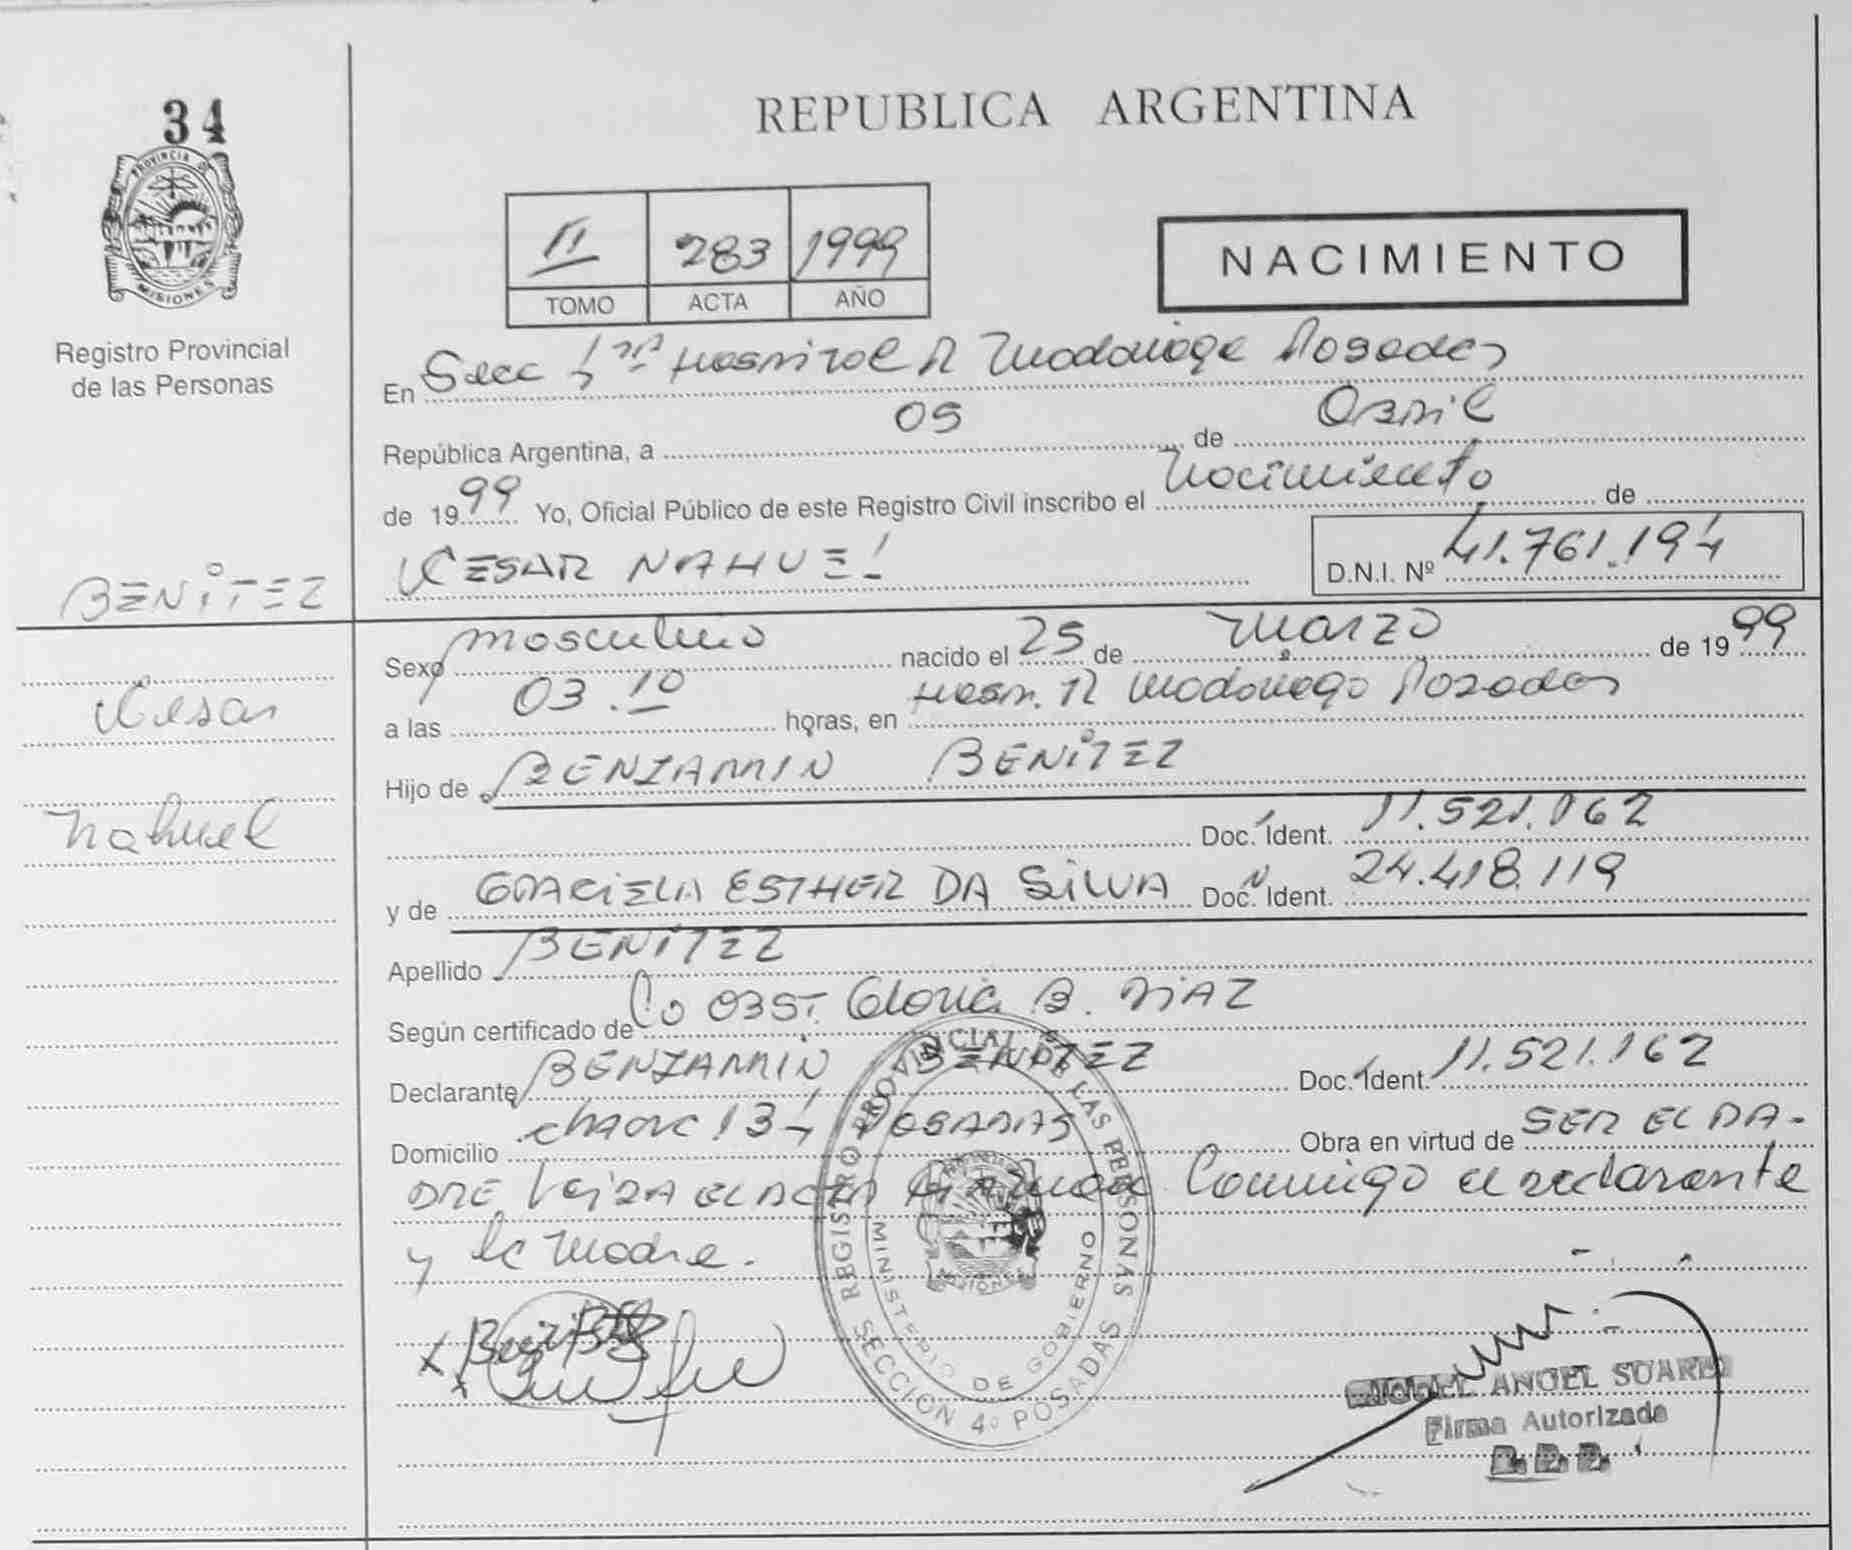 34
PROVINCIA DE
MISIONES
Registro Provincial
de las Personas
BENiTEZ
Cesar
Nahuel
REPUBLICA ARGENTINA
II 283 1999
TOMO ACTA AÑO
NACIMIENTO
En Secc 4ta Hospital R Madariaga Posadas
República Argentina, a 05 de Abril
de 1999 Yo, Oficial Público de este Registro Civil inscribo el Nacimiento de
CESAR NAHUEL D.N.I. Nº 41.761.194
Sexo Masculino nacido el 25 de Marzo de 1999
a las 03.10 horas, en Hosp. R Madariaga Posadas
Hijo de BENJAMIN BENiTEZ
Doc. Ident. 11.521.062
y de GRACiELA ESTHER DA SiLVA Doc. Ident. 24.418.119
Apellido BENITEZ
Según certificado de Obst. Gloria B. DiAZ
Declarante BENJAMIN BENITEZ Doc. Ident. 11.521.162
Domicilio 134 POSADAS Obra en virtud de SER EL PA-
DRE Leida EL ACTA Conmigo el declarante
y la Madre.
REGISTRO PROVINCIAL DE LAS PERSONAS
MINISTERIO DE GOBIERNO
MISIONES
SECCION 4º POSADAS
MIGUEL ANGEL SUAREZ
Firma Autorizada